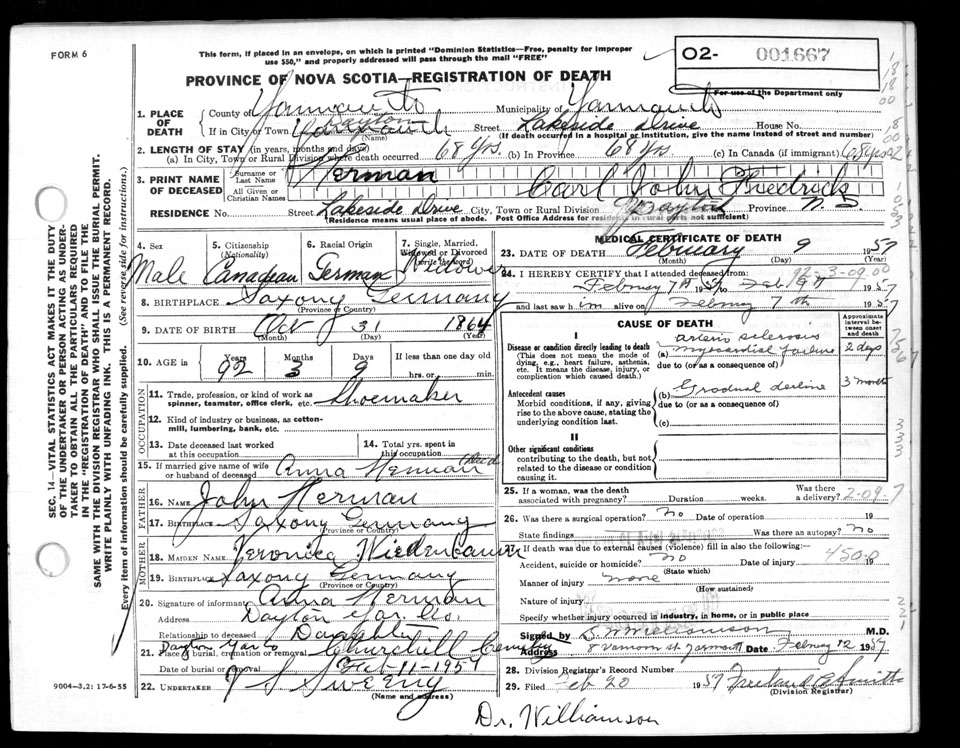 FORM 6
This form, if placed in an envelope, on which is printed "Dominion Statistics—Free, penalty for improper
use $50," and properly addressed will pass through the mail "FREE"
02- 001667
For use of the Department only
PROVINCE OF NOVA SCOTIA—REGISTRATION OF DEATH
1. PLACE OF DEATH County of Yarmouth Municipality of Yarmouth
Dayton
If in City or Town Yarmouth (Name) Street Lakeside Drive House No.
(If death occurred in a hospital or institution, give the name instead of street and number)
2. LENGTH OF STAY (in years, months and days)
(a) In City, Town or Rural Division where death occurred 68 Yrs. (b) In Province 68 Yrs (c) In Canada (if immigrant) 68 yrs
3. PRINT NAME OF DECEASED Surname or Last Name Herman
All Given or Christian Names Carl John Fredrick
RESIDENCE No. Street Lakeside Drive City, Town or Rural Division Dayton Province N.S.
Residence means usual place of abode. (Post Office Address for residents in rural parts not sufficient)
4. Sex Male
5. Citizenship (Nationality) Canadian
6. Racial Origin German
7. Single, Married, Widowed or Divorced (write the word) Widower
8. BIRTHPLACE Saxony Germany
(Province or Country)
9. DATE OF BIRTH Oct 31 1864
(Month) (Day) (Year)
10. AGE in Years 92 Months 3 Days 9 If less than one day old
hrs. or min.
OCCUPATION
11. Trade, profession, or kind of work as spinner, teamster, office clerk, etc. Shoemaker
12. Kind of industry or business, as cotton-mill, lumbering, bank, etc.
13. Date deceased last worked at this occupation
14. Total yrs. spent in this occupation
15. If married give name of wife or husband of deceased Anna Herman
FATHER
16. NAME John Herman
17. BIRTHPLACE Saxony Germany
(Province or Country)
MOTHER
18. MAIDEN NAME Veronica
19. BIRTHPLACE Saxony Germany
(Province or Country)
20. Signature of informant Anna Herman
Address Dayton Yar. Co.
Relationship to deceased Daughter
21. Place of burial, cremation or removal Churchill Cemetery
Date of burial or removal Feb-11-1957
22. UNDERTAKER V S Sweeny
(Name and address)
9004—3.2: 17-6-55
SEC. 14—VITAL STATISTICS ACT MAKES IT THE DUTY
OF THE UNDERTAKER OR PERSON ACTING AS UNDER-
TAKER TO OBTAIN ALL THE PARTICULARS REQUIRED
IN THE "REGISTRATION OF DEATH" AND TO FILE THE
SAME WITH THE DIVISION REGISTRAR WHO SHALL ISSUE THE BURIAL PERMIT.
WRITE PLAINLY WITH UNFADING INK. THIS IS A PERMANENT RECORD.
Every item of information should be carefully supplied. (See reverse side for instructions.)
MEDICAL CERTIFICATE OF DEATH
23. DATE OF DEATH February 9 1957
(Month) (Day)
24. I HEREBY CERTIFY that I attended deceased from
92-3-09.00
February 7th 57 to Feb. 9th 1957
and last saw him alive on February 7th 1957
CAUSE OF DEATH
Approximate interval between onset and death
Disease or condition directly leading to death
(This does not mean the mode of dying, e.g., heart failure, asthenia, etc. It means the disease, injury, or complication which caused death.)
arterio sclerosis
(a) myocardial failure 2 days
due to (or as a consequence of)
Antecedent causes
Morbid conditions, if any, giving rise to the above cause, stating the underlying condition last.
(b) Gradual decline 3 months
due to (or as a consequence of)
(c)
II
Other significant conditions
contributing to the death, but not related to the disease or condition causing it.
25. If a woman, was the death associated with pregnancy? Duration weeks. Was there a delivery?
2-09-7
26. Was there a surgical operation? No Date of operation 19
State findings Was there an autopsy? No
27. If death was due to external causes (violence) fill in also the following:—
Accident, suicide or homicide? No (State which) Date of injury 19
450.0
Manner of injury none
(How sustained)
Nature of injury
Specify whether injury occurred in industry, in home, or in public place
Signed by S. W Williamson M.D.
8 Vernon St. Yarmouth Date February 12 1957
28. Division Registrar's Record Number
29. Filed Feb 20 1957
(Division Registrar)
Dr. Williamson